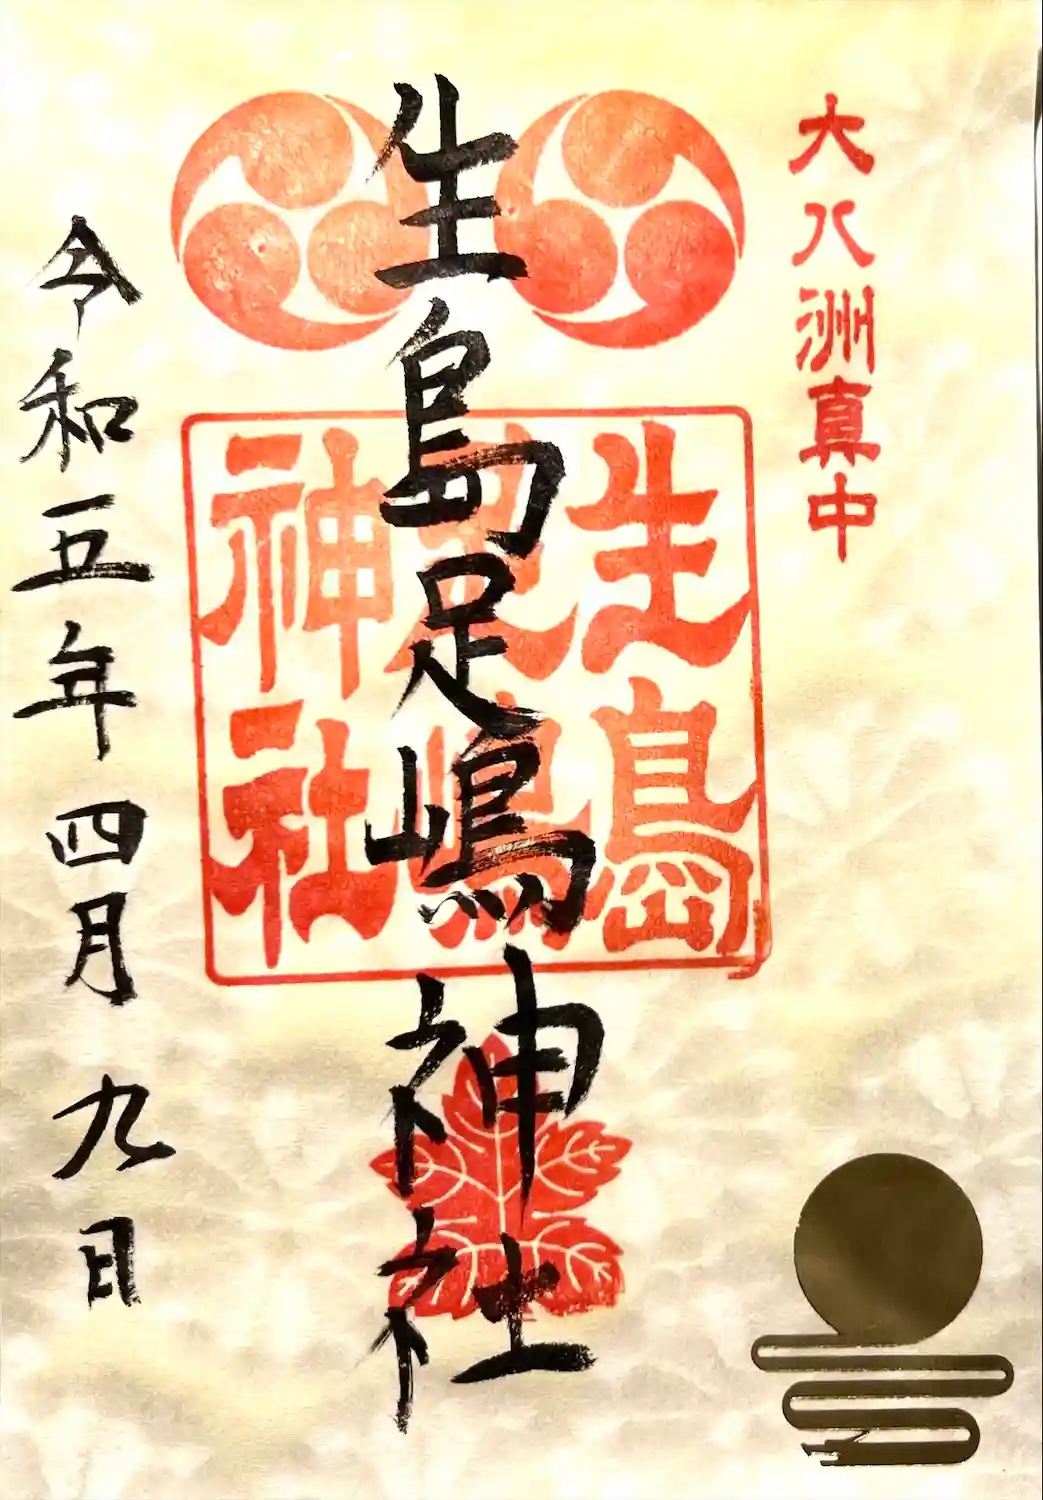 大八洲真中
生島足嶋神社
生島
足嶋
神社
令和五年四月九日